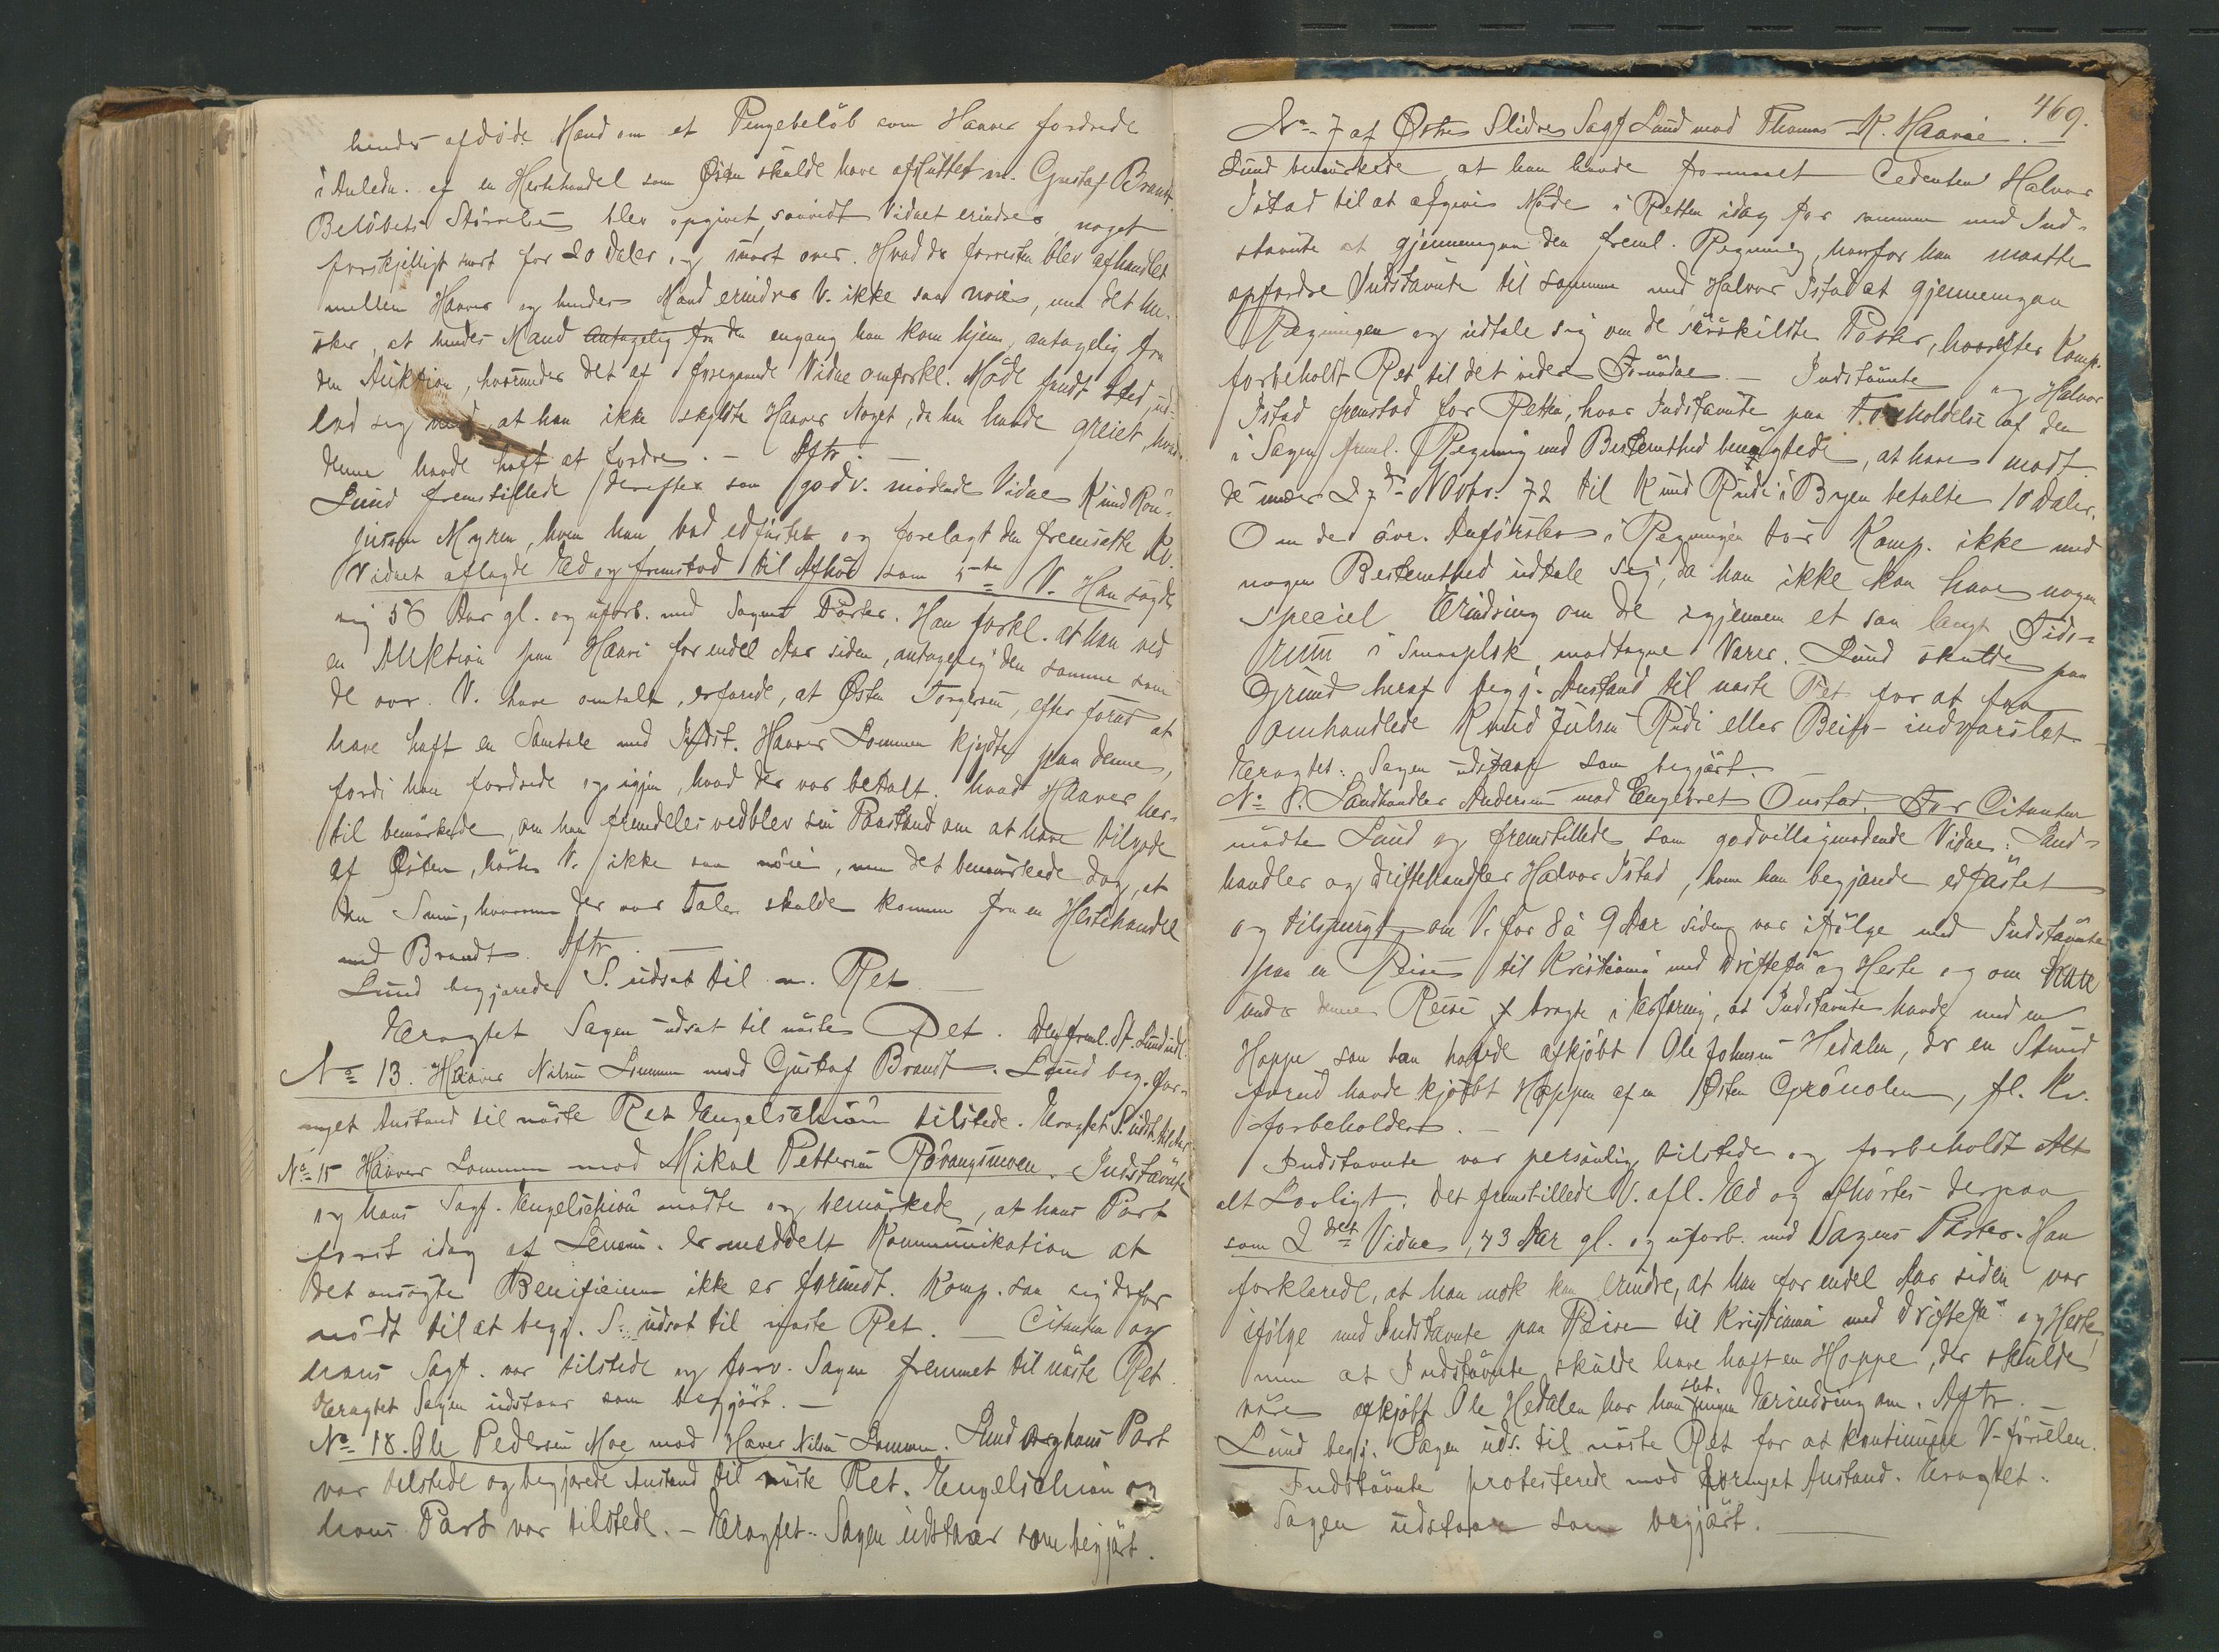 hendes afdöde Mand om et Pengebelöb som Haaver fordrede
i Anledn. af en Hestehandel som Østen skulde have afsluttet m. Gustaf Brandt.
Belöbets Störrelse blev opgivet, saavidt Vidnet erindrer, noget
forskjelligt snart for 20 Daler og snart over. Hvad der forresten blev afhandlet
mellem Haaver og hendes Mand erindrer V. ikke saa nöie, men det hu-
sker, at hendes Mand antagelig fra da engang han kom hjem, antagelig fra
den Auktion, hvorunder det af foregaaende Vidne omforkl. Möde fandt Sted ud-
lod sig med, at han ikke skyldte Haaver Noget, da han havde greiet, hvad
denne havde haft at fordre. — Aftr. —
Lund fremstillede derefter som godv. mödende Vidne Knud
Myren, hvem han bad edfæstet og forelagt den fremsatte Kv.
Vidnet aflagde Ed og fremstod til Afhör som 5te V. Han sagde
sig 56 Aar gl. og uforb. med Sagens Parter. Han forkl. at han ved
en Auktion paa Haavi for endel Aar siden, antagelig den samme som
de öv. V. have omtalt, erfarede, at Østen Torgersen, efter forud at
have haft en Samtale med Indst. Haaver Lommen kjydte paa denne,
fordi han fordrede op igjen, hvad der var betalt. Hvad Haaver her-
til bemärkede, om han fremdeles vedblev sin Paastand om at have tilgode
af Østen, hörte V. ikke saa nöie, men det bemärkede dog, at
den Sum, hvorom der var Tale skulde komme fra en Hestehandel
med Brandt. Aftr. —
Lund begjærede S. udsat til n. Ret. —
Eragtet Sagen udsat til näste Ret. Den freml. St. Lund udl.
No 13. Haaver Nilsen Lommen mod Gustaf Brandt. Lund beg. for-
nyet Anstand til näste Ret Engelschiön tilstede. Eragtet S. udst.
No 15 Haaver Lommen mod Mikal Pettersen Robangsmoen. Indstävnte
og hans Sagf. Engelschiön mödte og bemärkede, at hans Part
först idag af Lensm. er meddelt Kommunikation at
det ansögte Benificium ikke er forundt. Komp. saa sig derfor
nödt til at begj. S. udsat til näste Ret. — Citanten og
hans Sagf. var tilstede og forv. Sagen fremmet til näste Ret.
Eragtet Sagen udstaar som begjärt. —
No 18. Ole Pedersen Moe mod Haver Nilsen Lommen. Lund og hans Part
var tilstede og begjærede Anstand til näste Ret. Engelschiön og
hans Part var tilstede. — Eragtet: Sagen udstaar som begjärt.
469.
No 7 af Østre Slidre Sagf Lund mod Thomas K. Haavie. —
Lund bemärkede at han havde formaaet Cedenten Halvor
Istad til at afgive Möde i Retten idag for sammen med Ind-
stävnte at gjennemgaa den freml. Regning, hvorfor han maatte
opfordre Indstävnte til sammen med Halvor Istad at gjennemgaa
Regningen og udtale sig om de särskildte Poster, hvorefter Komp.
forbeholdt Ret til det videre Fornödne. — Indstävnte og Halvor
Istad fremstod for Retten, hvor Indstävnte paa Foreholdelse af den
i Sagen freml. Regning med Bestemthed benægtede, at have modt.
de under 27de Novbr. 72 til Knud Rudi i Byen betalte 10 Daler.
Om de övr. Anförsler i Regningen tör Komp. ikke med
nogen Bestemthed udtale sig, da han ikke kan have nogen
speciel Erindring om de igjennem et saa langt Tids-
rum i Smaaplok modtagne Varer. Lund skulde paa
Grund heraf begj. Anstand til näste Ret for at faa
omhandlede Knud Julsen Rudi eller Beito indvarslet —
Eragtet: Sagen udstaar som begjärt. —
No 8. Landhandler Andersen mod Engebret Onstad. For Citanten
mödte Lund og fremstillede som godvilligmödende Vidne: Land-
handler og Driftehandler Halvor Istad, hvem han begjærede edfästet
og tilspurgt, om V. for 8 à 9 Aar siden var ifölge med Indstävnte
paa en Reise til Kristiania med Driftefä og Heste og om Vidnet
under denne Reise ej bragte i Erfaring, at Indstävnte havde med en
Hoppe som han havde afkjöbt Ole Johnsen Hedalen, der en Stund
forud havde kjöbt Hoppen af en Østen Grönolen, fl. Kv.
forbeholdes. —
Indstävnte var personlig tilstede og forbeholdt Alt
alt Lovligt. Det fremstillede V. afl. Ed og afhörtes derpaa
som 2det Vidne, 43 Aar gl. og uforb. med Sagens Parter. Han
forklarede, at han nok kan erindre, at han for endel Aar siden var
ifölge med Indstävnte paa Reise til Kristiania med Driftefä og Heste,
men at Indstävnte skulde have haft en Hoppe, der skulde
være afkjöbt Ole Hedalen har han slet ingen Erindring om. Aftr. —
Lund begj. Sagen uds. til näste Ret for at kontinuere V-förselen.
Indstävnte protesterede mod fornyet Anstand. Eragtet:
Sagen udstaar som begjärt. —